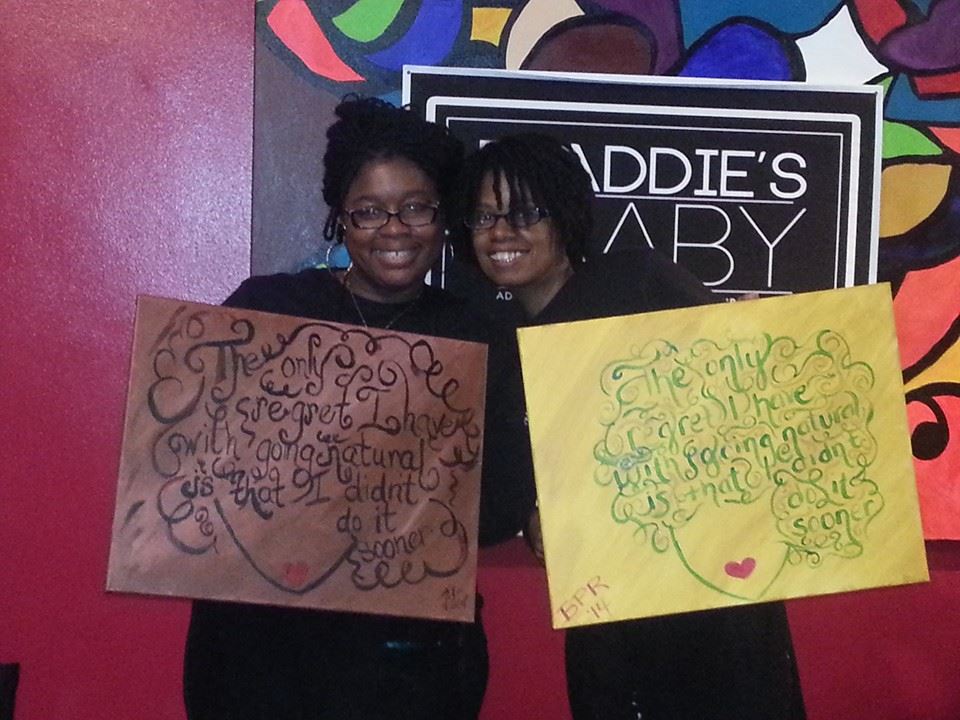 ADDIE'S
ABY
The only
regret I have
with going natural
is that I didnt
do it
sooner
The only
regret I have
with going natural
is that I didnt
do it
sooner
BPR
'14